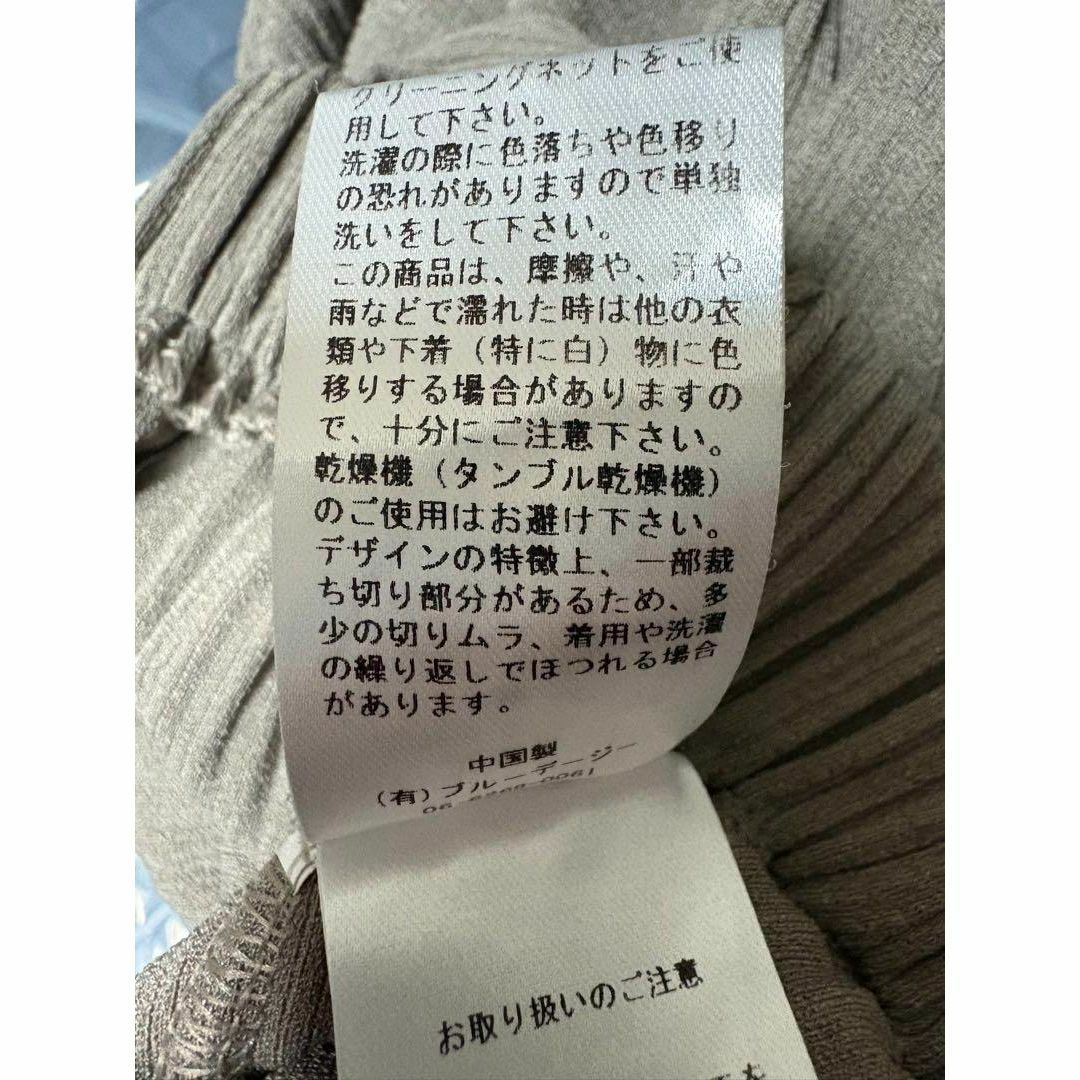 クリーニングネットをご使
用して下さい。
洗濯の際に色落ちや色移り
の恐れがありますので単独
洗いをして下さい。
この商品は、摩擦や、汗や
雨などで濡れた時は他の衣
類や下着（特に白）物に色
移りする場合がありますの
で、十分にご注意下さい。
乾燥機（タンブル乾燥機）
のご使用はお避け下さい。
デザインの特徴上、一部裁
ち切り部分があるため、多
少の切りムラ、着用や洗濯
の繰り返しでほつれる場合
があります。
中国製
(有)ブルーデージー
お取り扱いのご注意